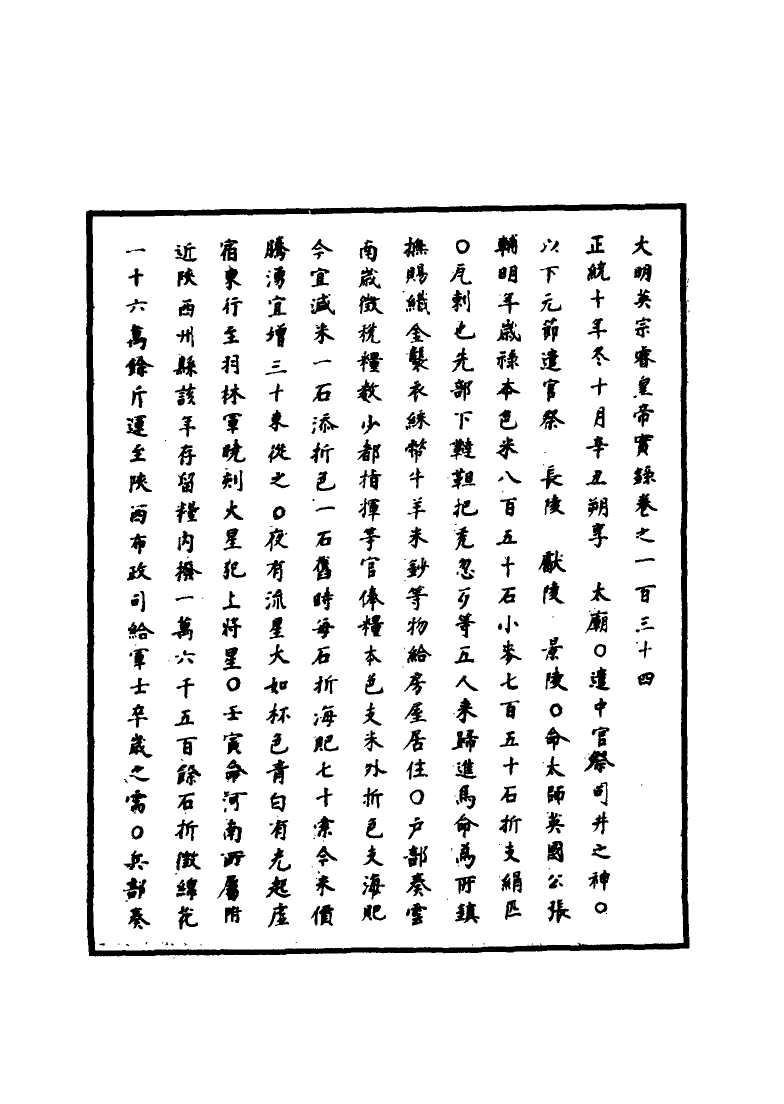 大明英宗睿皇帝實錄卷之一百三十四
正統十年冬十月辛丑朔享　太廟○遣中官祭司井之神○
以下元節遣官祭　長陵　獻陵　景陵○命太師英國公張
輔明年歲祿本色米八百五十石小麥七百五十石折支絹匹
○瓦剌也先部下韃靼把禿忽歹等五人來歸進馬命為所鎮
撫賜織金襲衣綵幣牛羊米鈔等物給房屋居住○戶部奏雲
南歲徵稅糧數少都指揮等官俸糧本色支米外折色支海肥
今宜減米一石添折色一石舊時每石折海肥七十索今米價
騰湧宜增三十索從之○夜有流星大如杯色青白有光起虛
宿東行至羽林軍曉刻火星犯上將星○壬寅命河南所屬附
近陝西州縣該年存留糧內撥一萬六千五百餘石折徵綿花
一十六萬餘斤運至陝西布政司給軍士卒歲之需○兵部奏